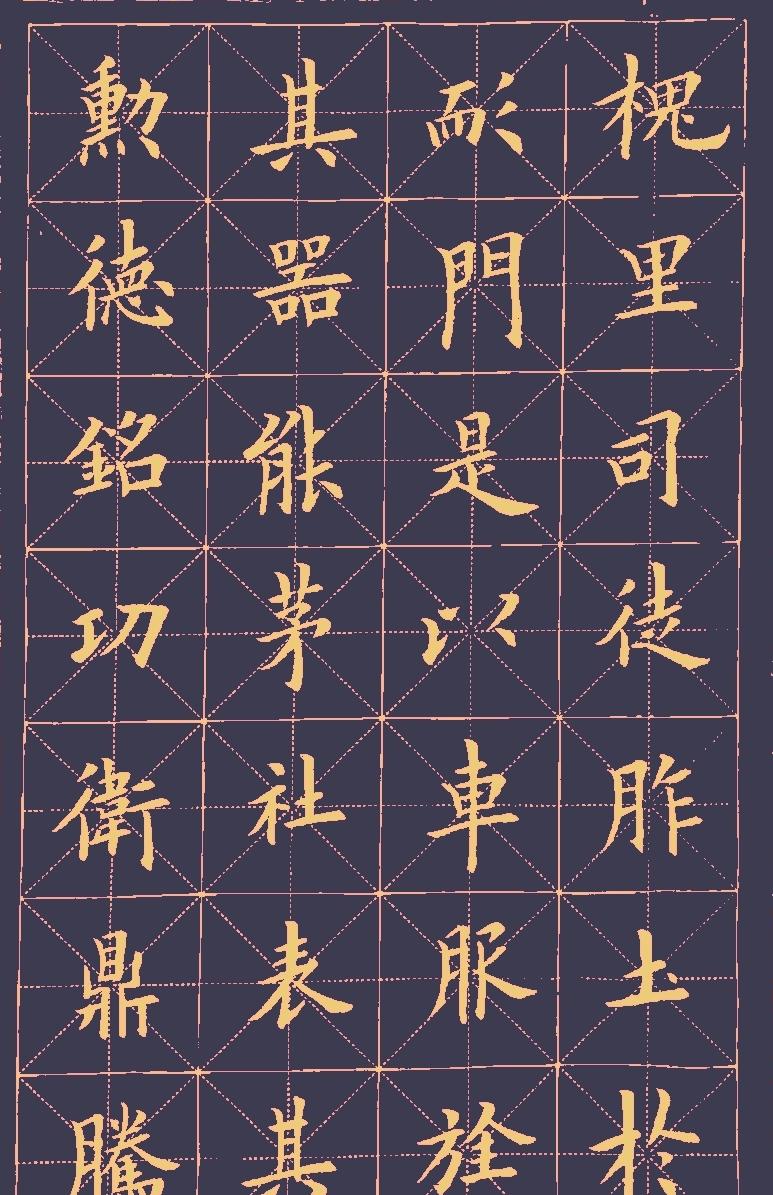 槐里司徒胙土於
耏門是以車服旌
其器能茅社表其
勳德銘功衛鼎騰